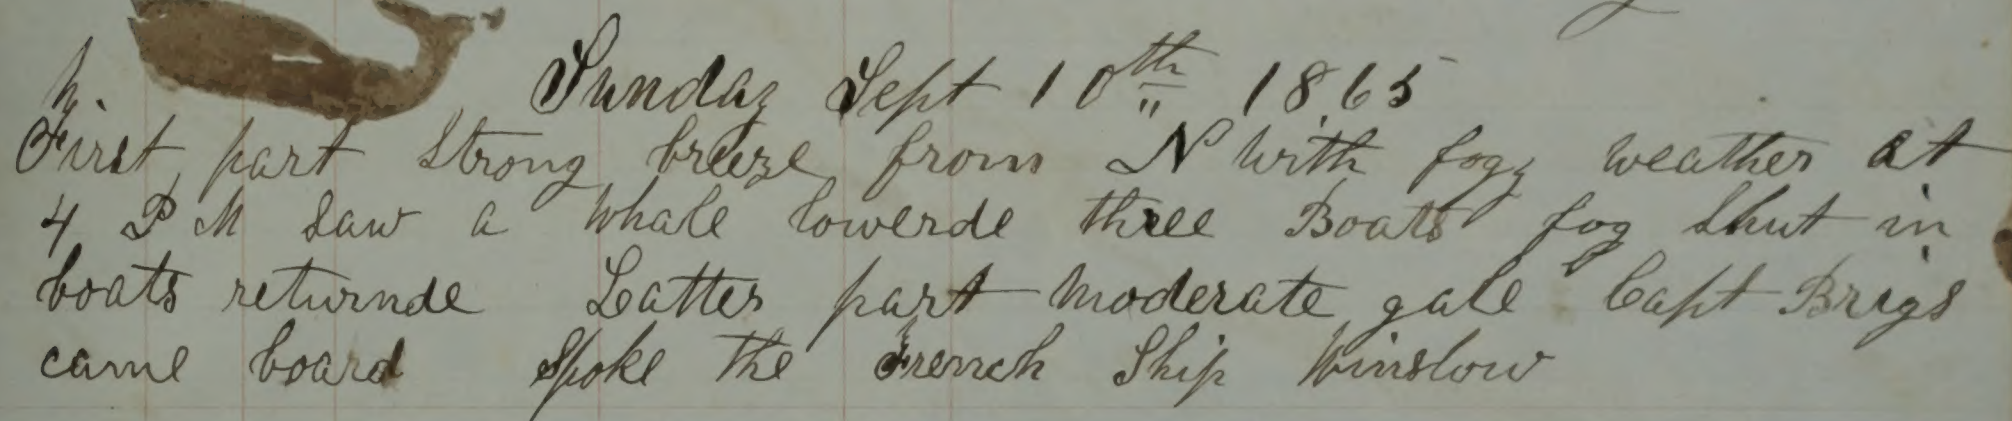 Sunday Sept 10th 1865
First part Strong breeze from N With fogy weather at
4 P M Saw a Whale lowerde three Boats fog Shut in
boats returnde Latter part Moderate gale Capt Brigs
came board Spoke the French Ship Winslow